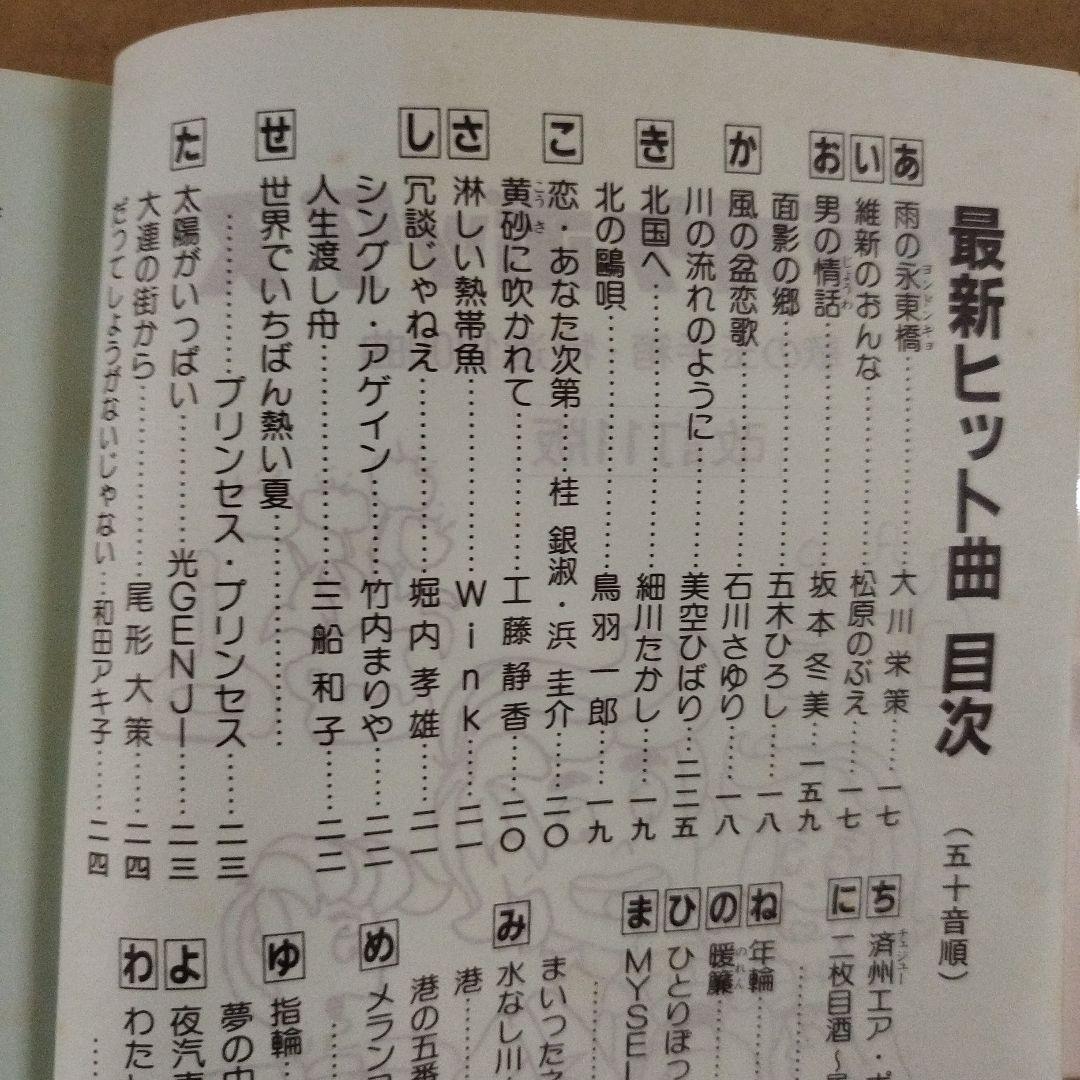 最新ヒット曲 目次 (五十音順)
あ 雨の永東橋……大川栄策……一七
ヨンドンキョ
い 維新のおんな……松原のぶえ……一七
お 男の情話……坂本冬美……一五九
じょうわ
面影の郷……五木ひろし……一八
か 風の盆恋歌……石川さゆり……一八
川の流れのように……美空ひばり……二二五
き 北国へ……細川たかし……一九
北の鷗唄……鳥羽一郎……一九
こ 恋・あなた次第……桂 銀淑・浜 圭介……二〇
黄砂に吹かれて……工藤静香……二〇
こうさ
さ 淋しい熱帯魚……Wink……二一
し 冗談じゃねえ……堀内孝雄……二一
シングル・アゲイン……竹内まりや……二二
人生渡し舟……三船和子……二二
せ 世界でいちばん熱い夏……
……プリンセス・プリンセス……二三
た 太陽がいっぱい……光GENJI……二三
大連の街から……尾形大策……二四
だってしょうがないじゃない……和田アキ子……二四
ち 済州エア・ポ
チェジュー
に 二枚目酒～
ね 年輪……
の 暖簾
のれん
ひ ひとりぼっ
ま MYSE
まいったネ
み 水なし川
港……
港の五番
め メラン
ゆ 指輪……
夢の中
よ 夜汽車
わ わた